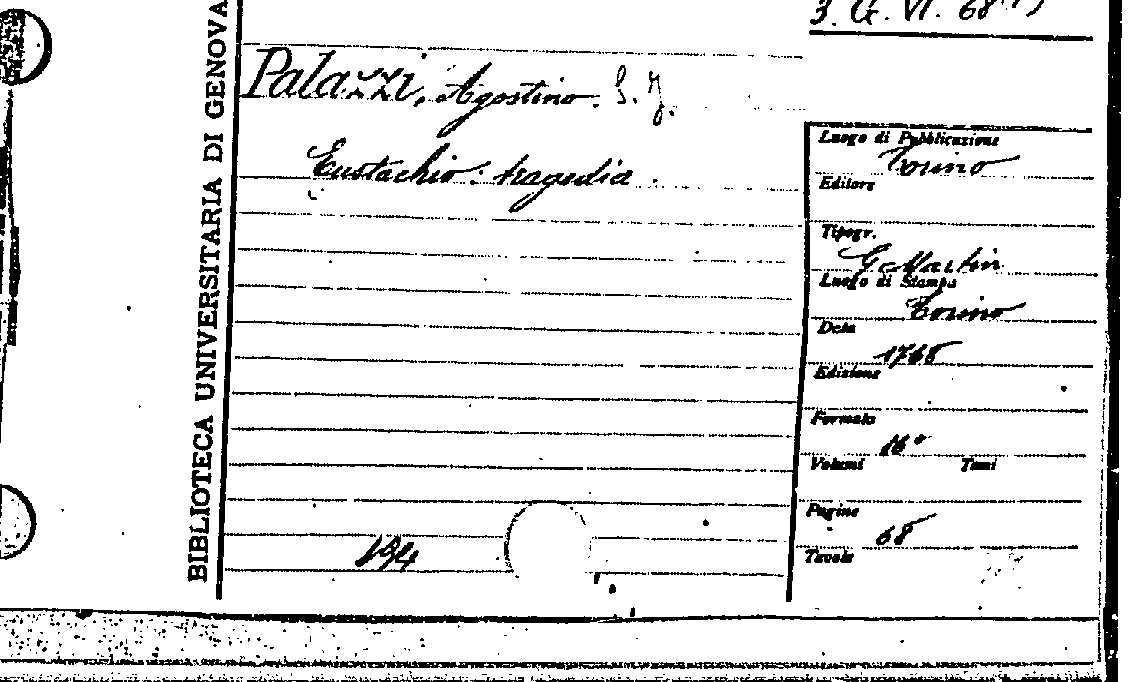 BIBLIOTECA UNIVERSITARIA DI GENOVA
3. G. VI. 68
Palazzi, Agostino. S. J.
Eustachio: tragedia.
Luogo di Pubblicazione
Torino
Editore
Tipogr.
G. Martin
Luogo di Stampa
Torino
Data
1768
Edizione
Formato
16°
Volumi Tomi
Pagine
68
Tavole